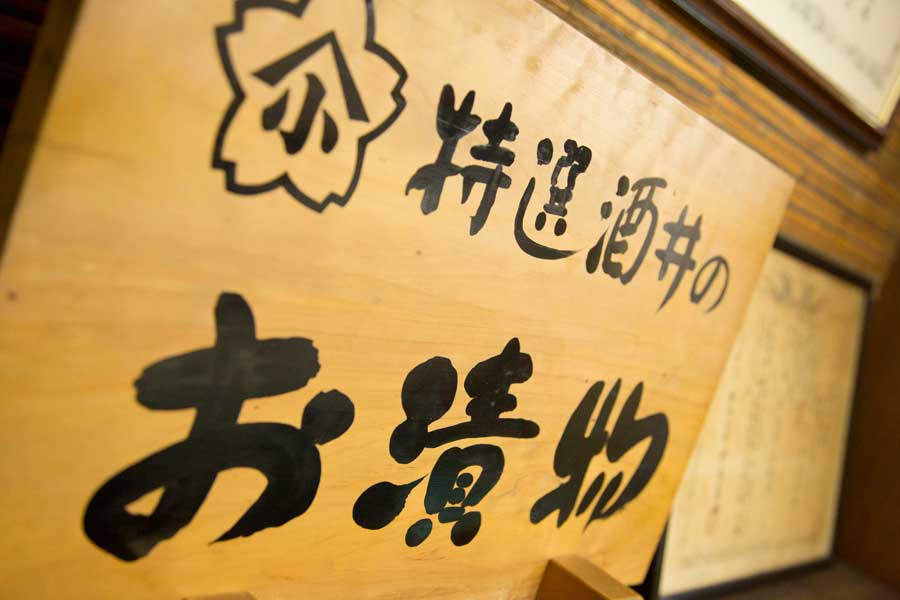 特選酒井の
お漬物